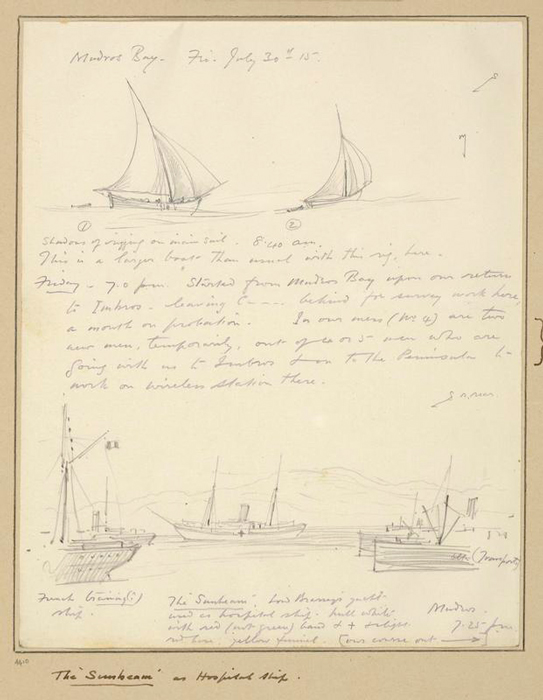 Mudros Bay. Fri. July 30th 15.
① ②
Shadows of rigging on main sail. 8.40 am.
This is a larger boat than usual with this rig, here.
Friday - 7.0 p.m. Started from Mudros Bay upon our return
to Imbros - leaving C--- behind for survey work here,
a month on probation. In our mess (No 4) are two
new men, temporarily, out of 4 or 5 men who are
going with us to Imbros & on to the Peninsula to
work on wireless station there.
French training(?) ship.
The "Sunbeam" Lord Brassey's yacht
used as hospital ship - hull white
with red (not green) band & +
red line. yellow funnel. (our course out →)
(Transport)
Mudros.
7.25 p.m.
The "Sunbeam" as Hospital ship.